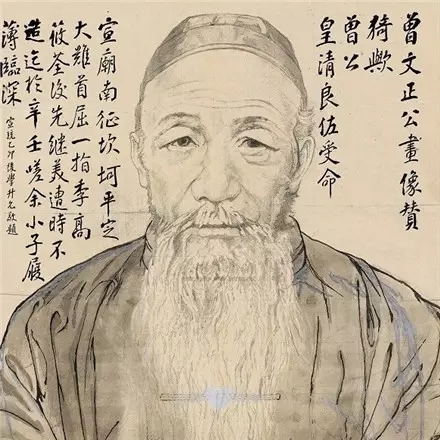 曾文正公畫像賛
猗歟
曾公
皇清良佐受命
宣廟南征坎坷平定
大難首屈一指李高
筱荃後先継美遭時不
造迄於辛壬嗟余小子履
薄臨深
宣統乙卯後學升允敬題